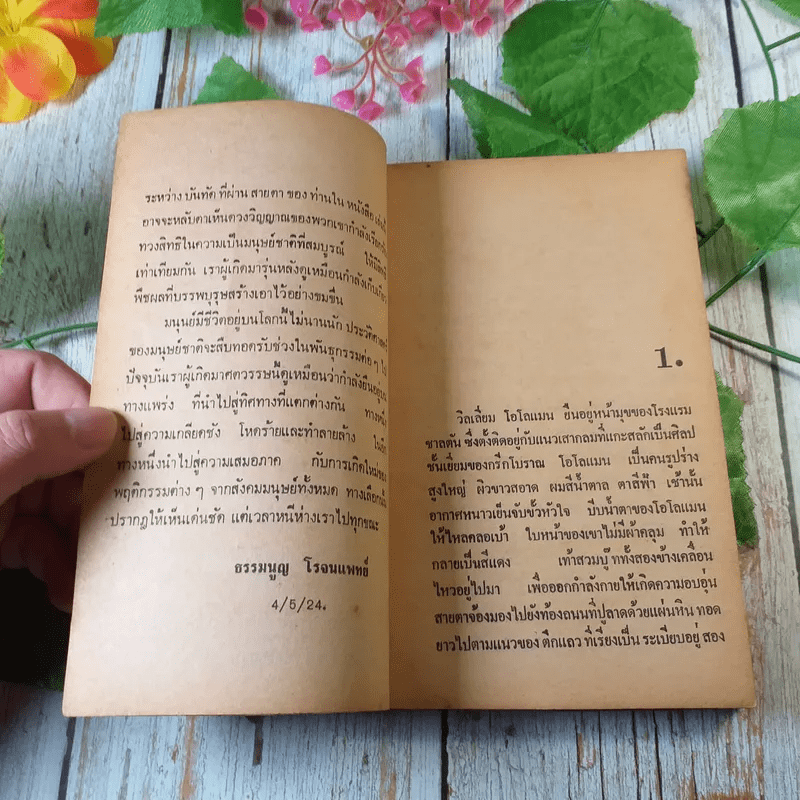 ระหว่าง บันทัด ที่ผ่าน สายตา ของ ท่านใน หนังสือ
อาจจะหลับตาเห็นดวงวิญญาณของพวกเขากำลังเรียก
ทวงสิทธิในความเป็นมนุษย์ชาติที่สมบูรณ์
เท่าเทียมกัน เราผู้เกิดมารุ่นหลังดูเหมือนกำลังเก็บ
พืชผลที่บรรพบุรุษสร้างเอาไว้อย่างขมขื่น
มนุษย์มีชีวิตอยู่บนโลกนี้ไม่นานนัก
ของมนุษย์ชาติจะสืบทอดรับช่วงในพันธุกรรมต่อๆ
ปัจจุบันเราผู้เกิดมาศตวรรษนี้ดูเหมือนว่ากำลังยืนอยู่
ทางแพร่ง ที่นำไปสู่ทิศทางที่แตกต่างกัน
ไปสู่ความเกลียดชัง โหดร้ายและทำลายล้าง
ทางหนึ่งนำไปสู่ความเสมอภาค กับการเกิดใหม่ของ
พฤติกรรมต่าง ๆ จากสังคมมนุษย์ทั้งหมด
ปรากฎให้เห็นเด่นชัด แต่เวลาหนีห่างเราไปทุกขณะ
ธรรมนูญ โรจนแพทย์
4/5/24.
1.
วิลเลี่ยม โอโลแมน ยืนอยู่หน้ามุขของโรงแรม
ชาลตัน ซึ่งตั้งติดอยู่กับแนวเสากลมที่แกะสลักเป็นศิลป
ชั้นเยี่ยมของกรีกโบราณ โอโลแมน เป็นคนรูปร่าง
สูงใหญ่ ผิวขาวสอาด ผมสีน้ำตาล ตาสีฟ้า เช้านั้น
อากาศหนาวเย็นจับขั้วหัวใจ บีบน้ำตาของโอโลแมน
ให้ไหลคลอเบ้า ใบหน้าของเขาไม่มีผ้าคลุม ทำให้
กลายเป็นสีแดง เท้าสวมบู๊ททั้งสองข้างเคลื่อน
ไหวอยู่ไปมา เพื่อออกกำลังกายให้เกิดความอบอุ่น
สายตาจ้องมองไปยังท้องถนนที่ปูลาดด้วยแผ่นหิน ทอด
ยาวไปตามแนวของ ตึกแถว ที่เรียงเป็น ระเบียบอยู่ สอง